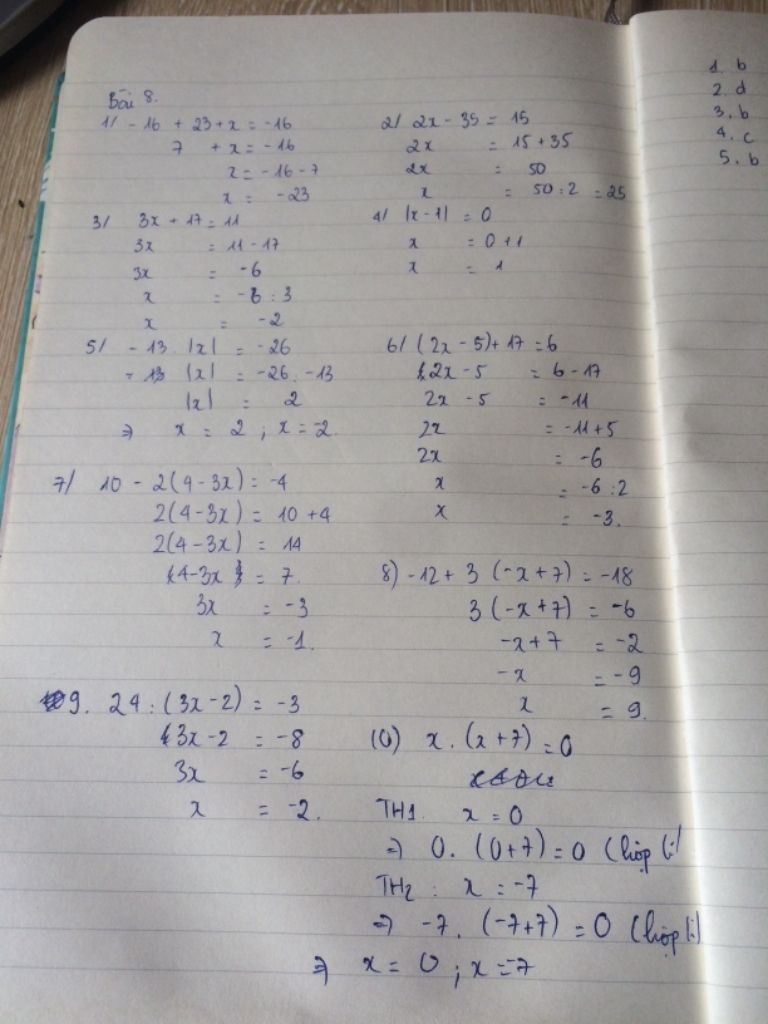 Bài 8.
1/ - 16 + 23 + x = -16
7 + x = -16
x = -16 - 7
x = -23
2/ 2x - 35 = 15
2x = 15 + 35
2x = 50
x = 50 : 2 = 25
3/ 3x + 17 = 11
3x = 11 - 17
3x = -6
x = -6 : 3
x = -2
4/ |x - 1| = 0
x = 0 + 1
x = 1
5/ - 13 . |x| = -26
|x| = -26 : -13
|x| = 2
⇒ x = 2 ; x = -2.
6/ (2x - 5) + 17 = 6
2x - 5 = 6 - 17
2x - 5 = -11
2x = -11 + 5
2x = -6
x = -6 : 2
x = -3.
7/ 10 - 2(4 - 3x) = -4
2(4 - 3x) = 10 + 4
2(4 - 3x) = 14
4 - 3x = 7
3x = -3
x = -1.
8) -12 + 3 (-x + 7) = -18
3 (-x + 7) = -6
-x + 7 = -2
-x = -9
x = 9.
9. 24 : (3x - 2) = -3
3x - 2 = -8
3x = -6
x = -2.
10) x . (x + 7) = 0
TH1. x = 0
⇒ 0 . (0 + 7) = 0 (hợp lí)
TH2 : x = -7
⇒ -7 . (-7 + 7) = 0 (hợp lí)
⇒ x = 0 ; x = -7
1. b
2. d
3. b
4. c
5. b